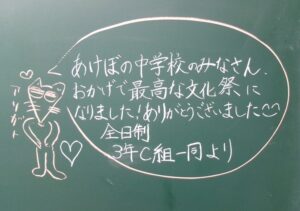 あけぼの中学校のみなさん、
おかげで最高な文化祭に
なりました！ありがとうございました♡
全日制
3年C組一同より
アリガト